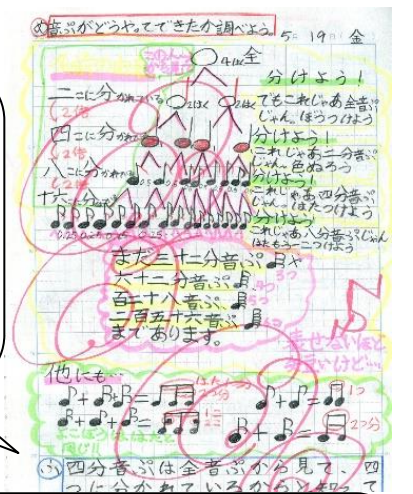 め 音ぷがどうやってできたか調べよう。 5月 19日 金
4はく 全
分けよう！
二こに分かれている 2はく 2はく でもこれじゃあ全音ぷ
じゃん。ぼうつけよう
2倍
四こに分かれる 分けよう！
2倍 これじゃあ二分音ぷ
じゃん。色ぬろう
八こに分かれてる 0.5 0.5 分けよう！
2倍 これじゃあ四分音ぷ
じゃん。はたつけよう
十六 分けよう
0.25 0.25 0.25 これじゃあ八分音ぷじゃん
はたもう一こつけよう
まだ三十二分音ぷ や
六十二分音ぷ 4つ
百二十八音ぷ 5つ
二百五十六音ぷ
まであります。
他にも…
+ + = 2つ分 + = 1つ
+ + = + = 2つ分
よこぼうは、はたと
同じ!!
四分音ぷは全音ぷから見て、四
つに分かれているからと知って